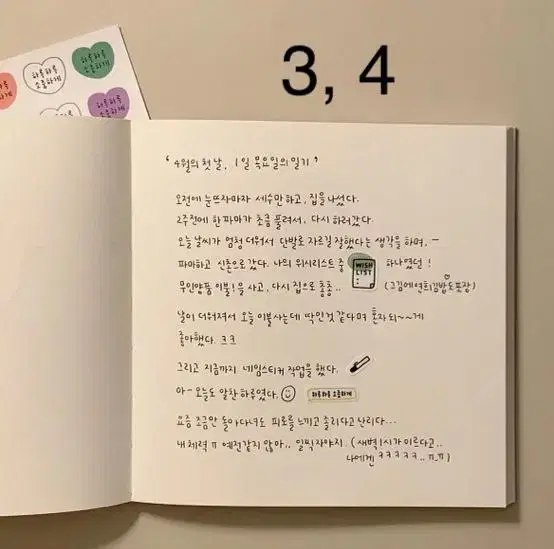 하루하루
소중하게
하루하루
소중하게
하루하루
소중하게
3, 4
'4월의 첫 날, 1일 목요일의 일기'
오전에 눈뜨자마자 세수만 하고, 집을 나섰다.
2주전에 한 파마가 조금 풀려서, 다시 하러갔다.
오늘 날씨가 엄청 더워서 단발로 자르길 잘했다는 생각을 하며, ㅡ
파마하고 신촌으로 갔다. 나의 위시리스트 중 WISH LIST 하나였던!
무인양품 이불!을 사고, 다시 집으로 총총.. (그김에 연희김밥도 포장)
날이 더워져서 오늘 이불 사는데 딱인것 같다며 혼자 되~~게
좋아했다. ㅋㅋ
그리고 지금까지 네임스티커 작업을 했다.
아- 오늘도 알찬 하루였다. 하루하루 소중하게
요즘 조금만 돌아다녀도 피로를 느끼고 졸리다고 난리다...
내 체력 ㅠ 예전같지 않아.. 일찍 자야지. (새벽 1시가 이르다고..
나에겐 ㅋㅋㅋㅋㅋ.. ㅠ_ㅠ)